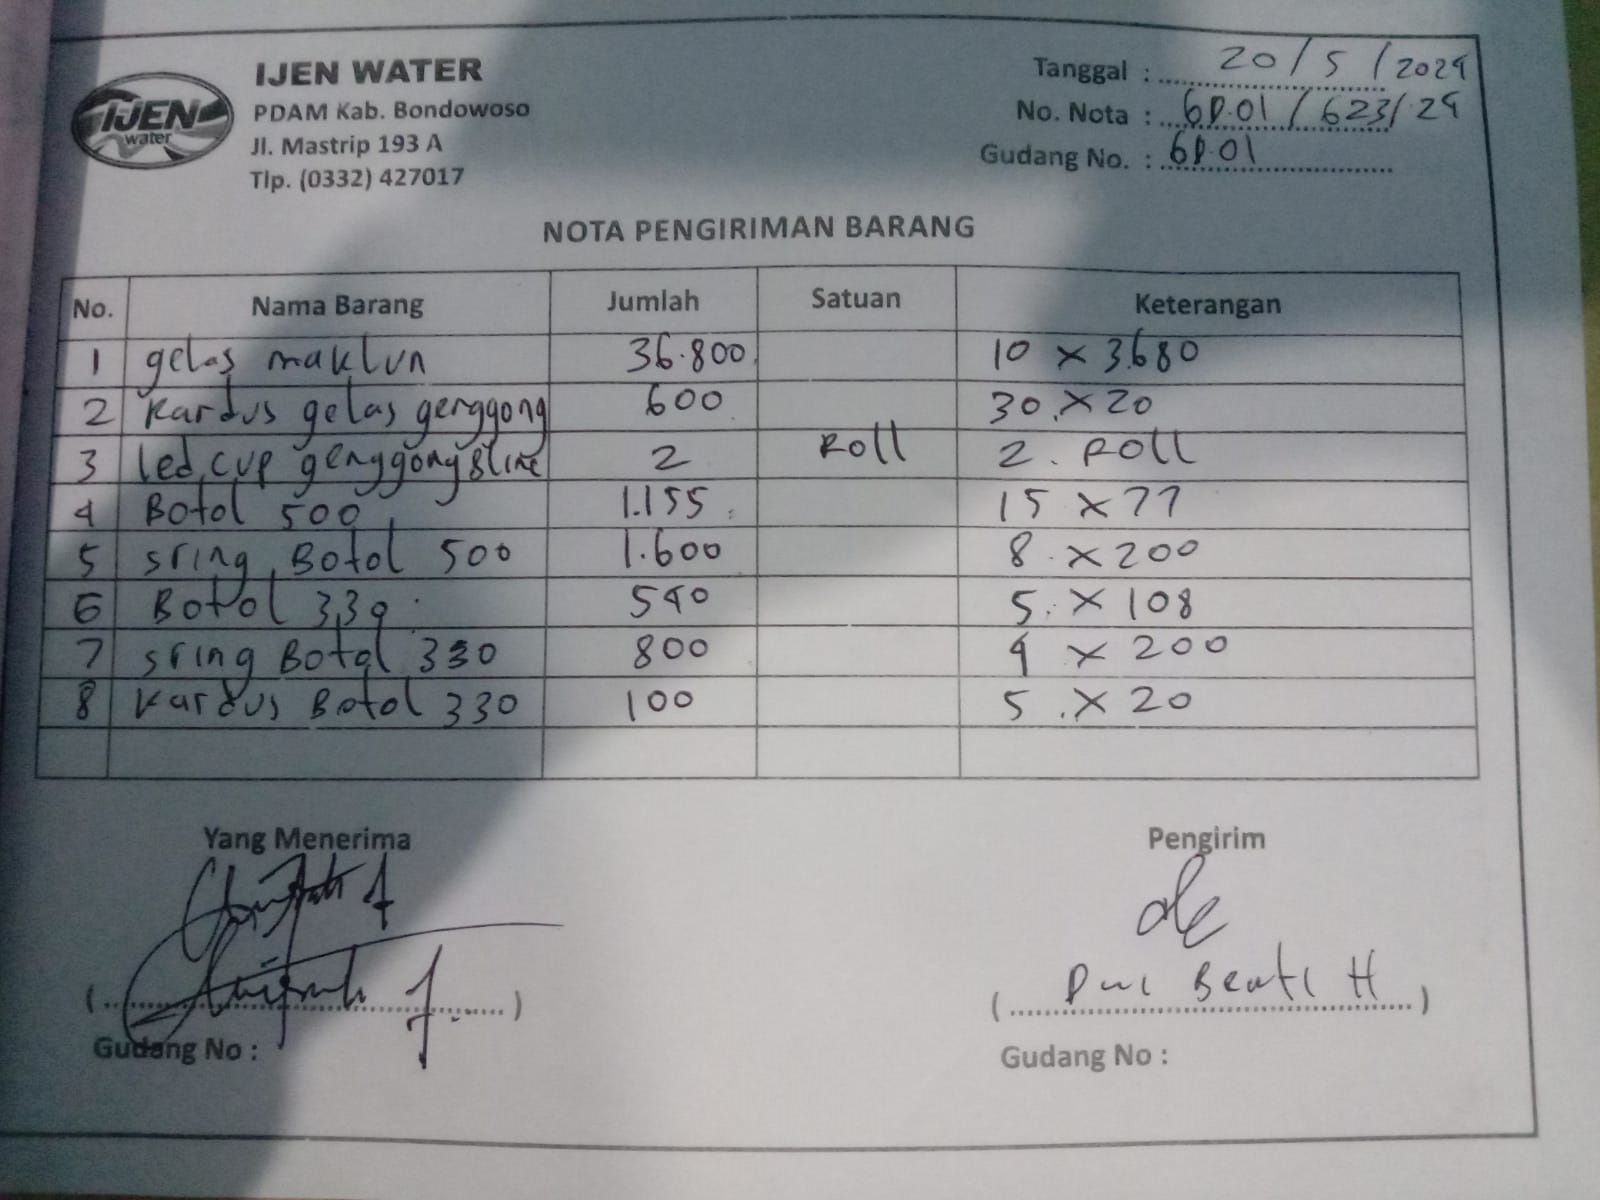 IJEN WATER
PDAM Kab. Bondowoso
Jl. Mastrip 193 A
Tlp. (0332) 427017
IJEN
water
Tanggal : 20/5/2024
No. Nota : GD.01/623/24
Gudang No. : GD.01
NOTA PENGIRIMAN BARANG
No. Nama Barang Jumlah Satuan Keterangan
1 gelas maklun 36.800 10 x 3680
2 Kardus gelas genggong 600 30 x 20
3 led cup genggong 8 line 2 Roll 2 Roll
4 Botol 500 1.155 15 x 77
5 sring Botol 500 1.600 8 x 200
6 Botol 330 540 5 x 108
7 sring Botol 330 800 4 x 200
8 Kardus Botol 330 100 5 x 20
Yang Menerima Pengirim
Dwi Beati H
Gudang No : Gudang No :